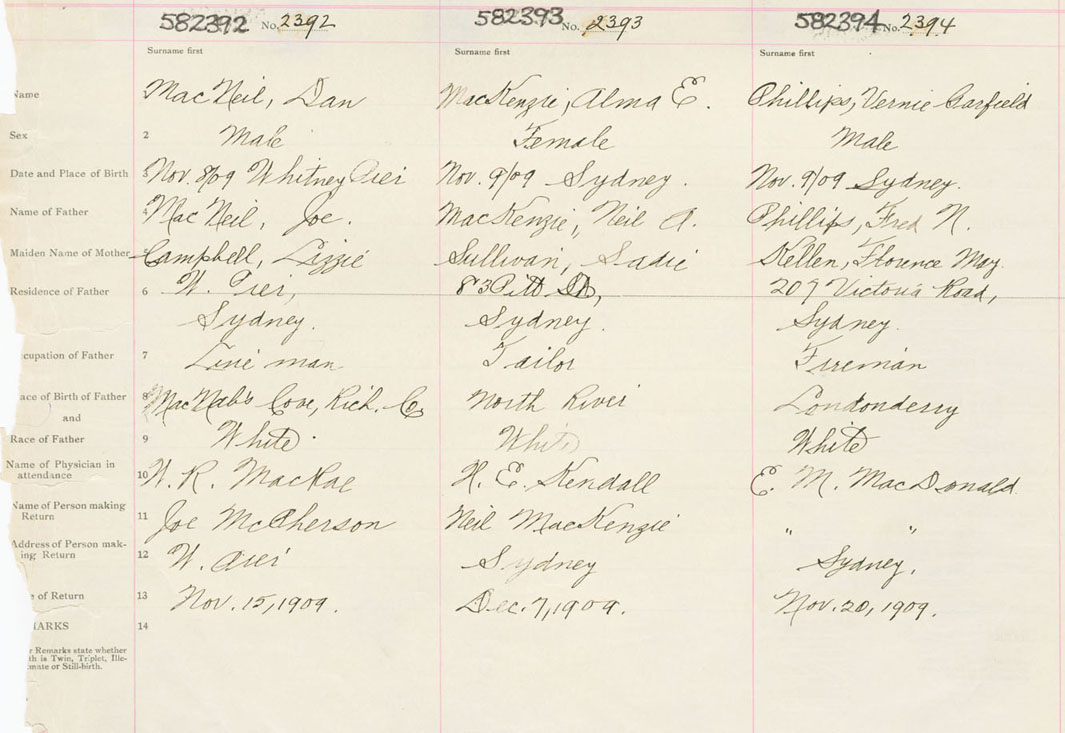 582392 No. 2392 582393 No. 2393 582394 No. 2394
Surname first Surname first Surname first
Name MacNeil, Dan MacKenzie, Alma E. Phillips, Vernie Garfield
Sex 2 Male Female Male
Date and Place of Birth 3 Nov. 8/09 Whitney Pier Nov. 9/09 Sydney. Nov. 9/09 Sydney.
Name of Father 4 MacNeil, Joe. MacKenzie, Neil A. Phillips, Fred N.
Maiden Name of Mother 5 Campbell, Lizzie Sullivan, Sadie Kellen, Florence May.
Residence of Father 6 W. Pier, 83 Pitt St, 207 Victoria Road,
Sydney. Sydney. Sydney.
cupation of Father 7 Line man Tailor Fireman
ace of Birth of Father 8 MacNab's Cove, Rich. Co North River Londonderry
and
Race of Father 9 White. White White
Name of Physician in
attendance 10 W. R. MacRae H. E. Kendall E. M. MacDonald
Name of Person making
Return 11 Joe McPherson Neil MacKenzie " "
Address of Person mak-
ing Return 12 W. Pier Sydney Sydney.
e of Return 13 Nov. 15, 1909. Dec. 7, 1909. Nov. 20, 1909.
MARKS 14
r Remarks state whether
th is Twin, Triplet, Ille-
mate or Still-birth.